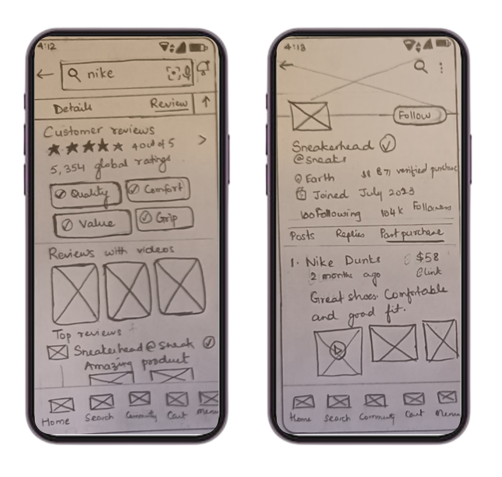 4:12
nike
Details Review
Customer reviews
4 out of 5
5,354 global ratings
Quality Comfort
Value Grip
Reviews with videos
Top reviews
Sneakerhead @ Sneak
Amazing product
Home Search Community Cart Menu
4:13
Follow
Sneakerhead
@sneaks
Earth verified purchase
Joined July 2023
100 Following 104k Followers
Posts Replies Past purchase
1. Nike Dunks $58
2 months ago link
Great shoes Comfortable
and good fit.
Home Search Community Cart Menu